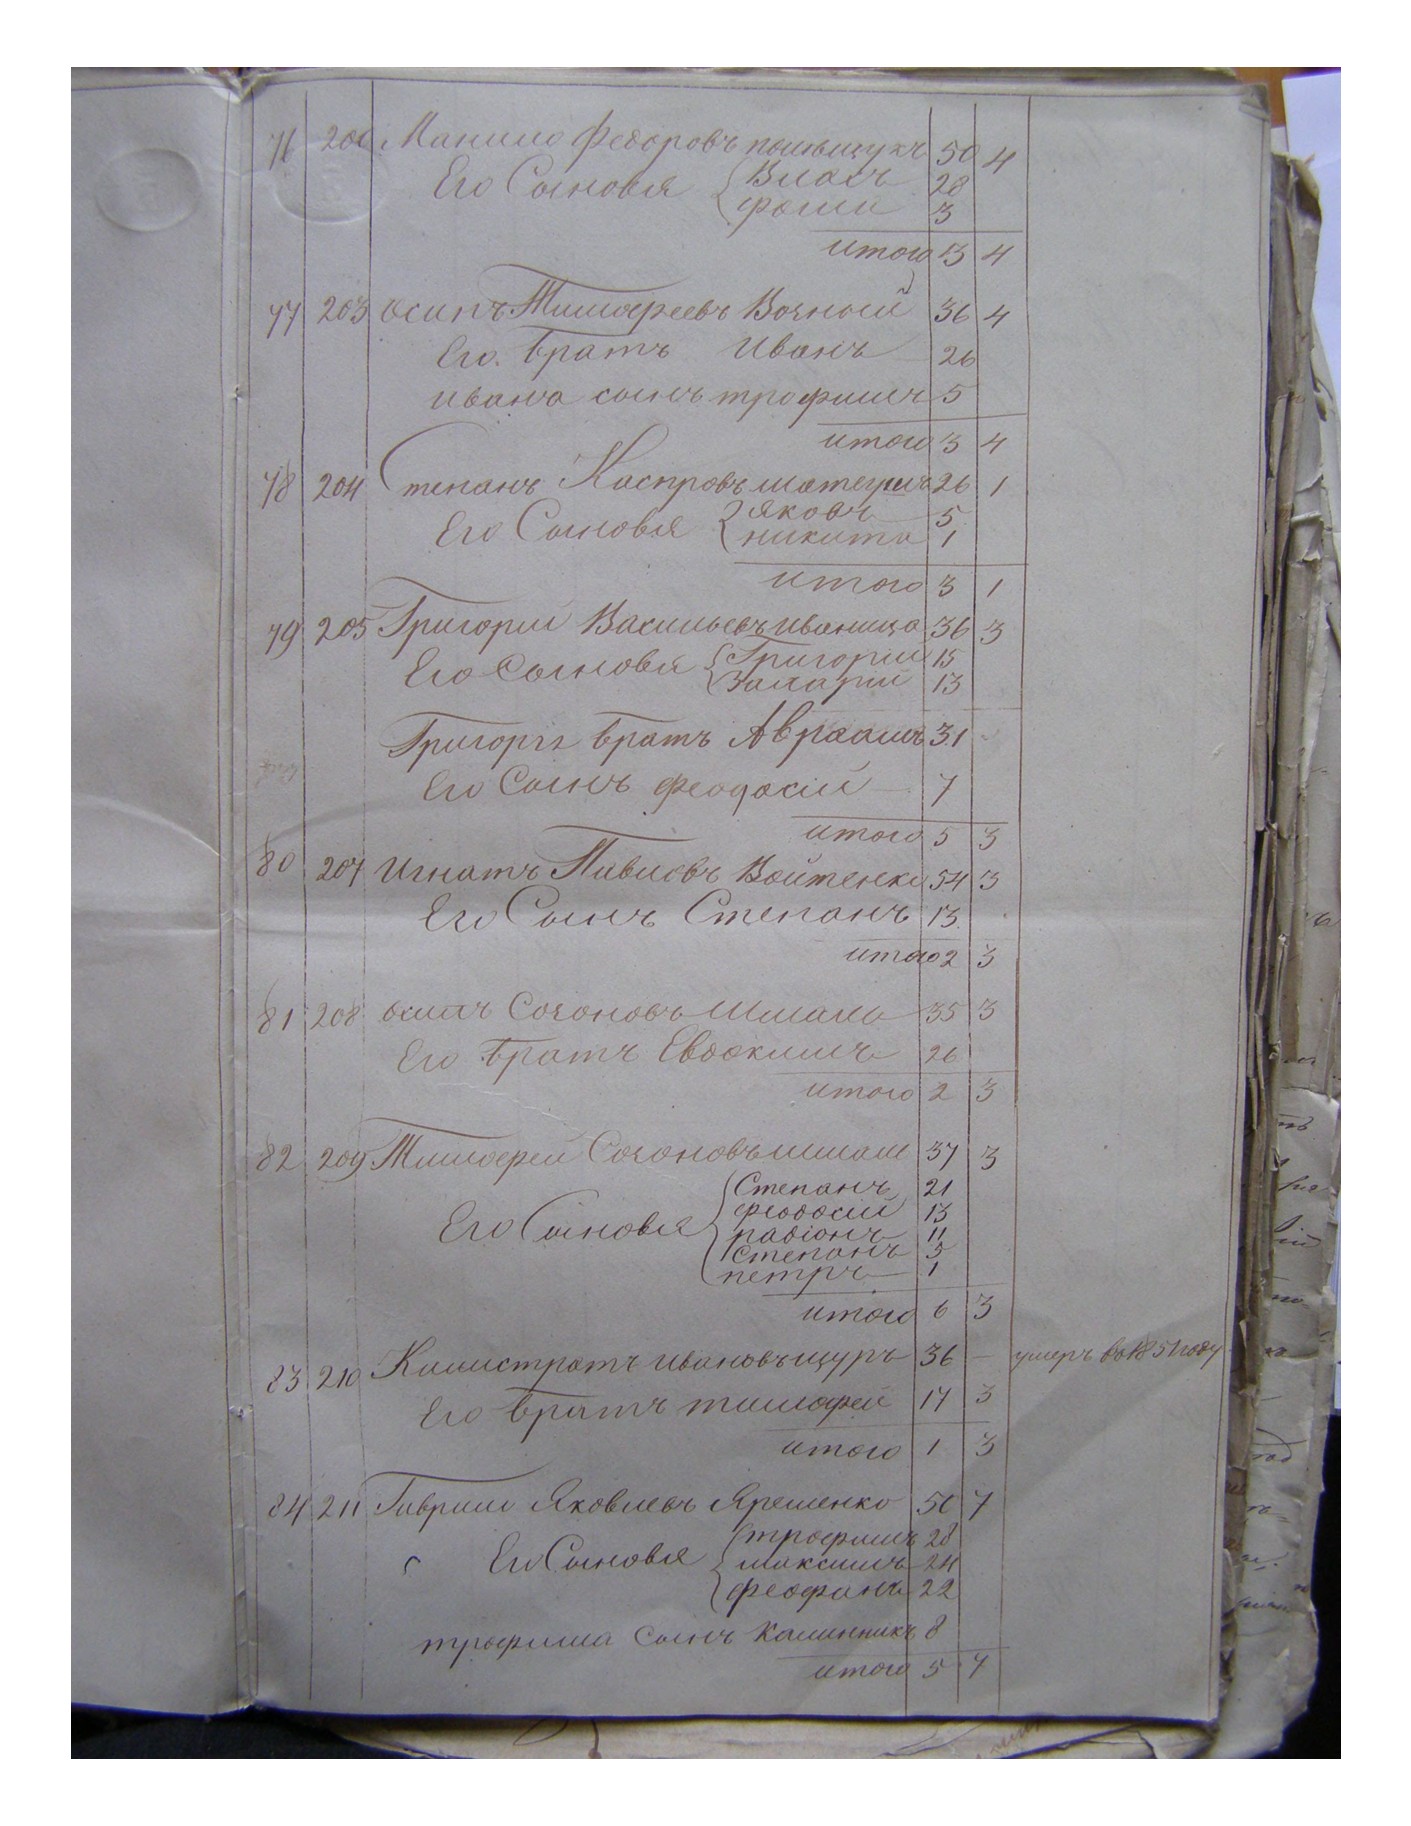 76 Манило Федоровъ 50 4
Его Сыновья Власъ 28
Фома 3
итого 3 4
77 203 Осипъ Тимофеевъ 36 4
Его братъ Иванъ 26
ивана сынъ трофимъ 5
итого 3 4
78 204 Степанъ Каспровъ 26 1
Его Сыновья яковъ 5
никита 1
итого 3 1
79 205 Григорій Васильевъ иваница 36 3
Его Сыновья Григорій 15
Захарій 13
Григорія братъ Авраамъ 31
Его Сынъ феодосій 7
итого 5 3
80 207 Игнатъ Павловъ Войтенко 54 3
Его Сынъ Степанъ 13
итого 2 3
81 208 осипъ Созоновъ 35 3
Его братъ Евдокимъ 26
итого 2 3
82 209 Тимофей Созоновъ 37 3
Степанъ 21
феодосій 13
Его Сыновья радіонъ 11
Степанъ 3
петръ 1
итого 6 3
83 210 Калистратъ ивановъ щуръ 36 — умеръ во 1851 году
Его братъ тимофей 17 3
итого 1 3
84 211 Гаврило Яковлевъ Ярешенко 50 7
трофимъ 28
Его Сыновья максимъ 24
феофанъ 22
трофима сынъ Калинникъ 8
итого 5 7